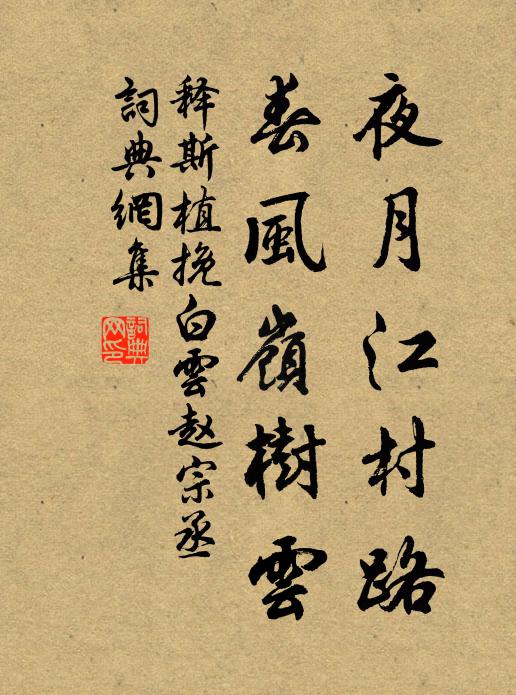 夜月江村路
春風嶺樹雲
释斯植挽白雲赵宗丞
詞典網集
詞典网印